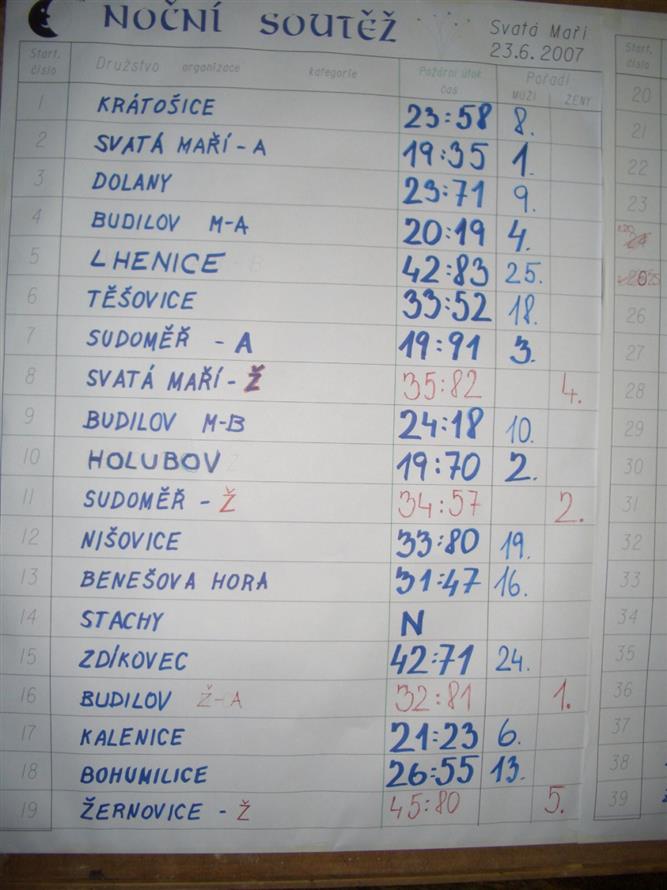 NOČNÍ SOUTĚŽ
Svatá Maří
23.6.2007
Start. číslo Družstvo organizace kategorie Požární útok čas Pořadí MUŽI ŽENY
1 KRÁTOŠICE 23:58 8.
2 SVATÁ MAŘÍ - A 19:35 1.
3 DOLANY 23:71 9.
4 BUDILOV M-A 20:19 4.
5 LHENICE 42:83 25.
6 TĚŠOVICE 33:52 18.
7 SUDOMĚŘ - A 19:91 3.
8 SVATÁ MAŘÍ - Ž 35:82 4.
9 BUDILOV M-B 24:18 10.
10 HOLUBOV 19:70 2.
11 SUDOMĚŘ - Ž 34:57 2.
12 NIŠOVICE 33:80 19.
13 BENEŠOVA HORA 31:47 16.
14 STACHY N
15 ZDÍKOVEC 42:71 24.
16 BUDILOV Ž-A 32:81 1.
17 KALENICE 21:23 6.
18 BOHUMILICE 26:55 13.
19 ŽERNOVICE - Ž 45:80 5.
Start. číslo
20
21
22
23
26
27
28
29
30
31
32
33
34
35
36
37
38
39